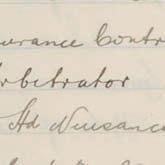 urance Contr
Arbitrator
Ad Nuisanc